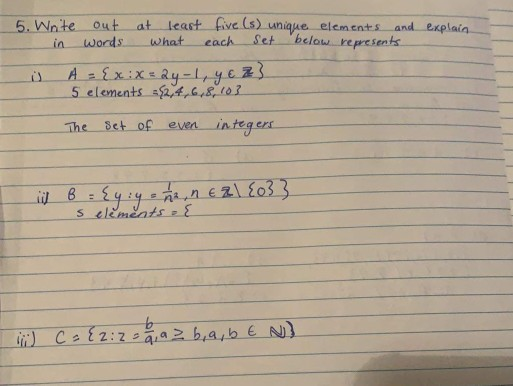 5. Write out at least five (5) unique elements and explain
in words what each set below represents
i) A = {x : x = 2y - 1, y ∈ ℤ}
5 elements = {2, 4, 6, 8, 10}
The set of even integers
ii) B = {y : y = 1/n², n ∈ ℤ \ {0}}
5 elements = {
iii) C = {z : z = b/a, a ≥ b, a, b ∈ ℕ}